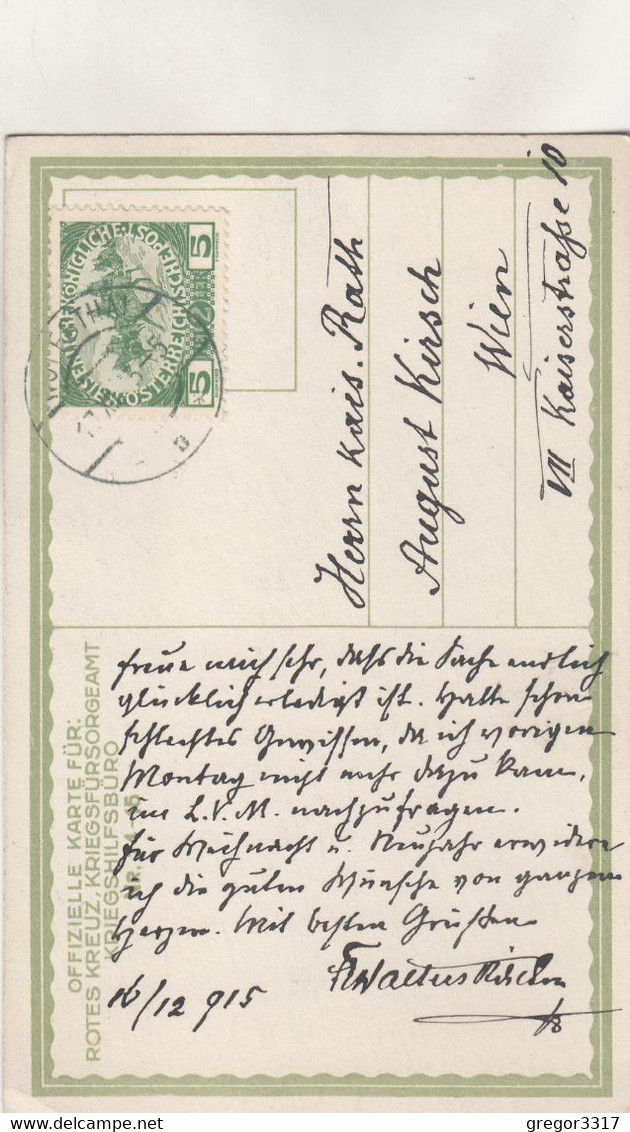 KAISERLICHE KÖNIGLICHE
ÖSTERREICHISCHE POST
5
5
Herrn kais. Rath
August Kirsch
Wien
VII Kaiserstraße 10
OFFIZIELLE KARTE FÜR:
ROTES KREUZ, KRIEGSFÜRSORGEAMT
KRIEGSHILFSBÜRO
freue mich sehr, daß die Sache endlich
glücklich erledigt ist. Hatte schon
schlechtes Gewissen, da ich vorigen
Montag nicht mehr dazu kam,
im L.V.M. nachzufragen.
Für Weihnacht u. Neujahr erwidere
ich die guten Wünsche von ganzem
Herzen. Mit besten Grüßen
16/12 915
© gregor3317
delcampe.net